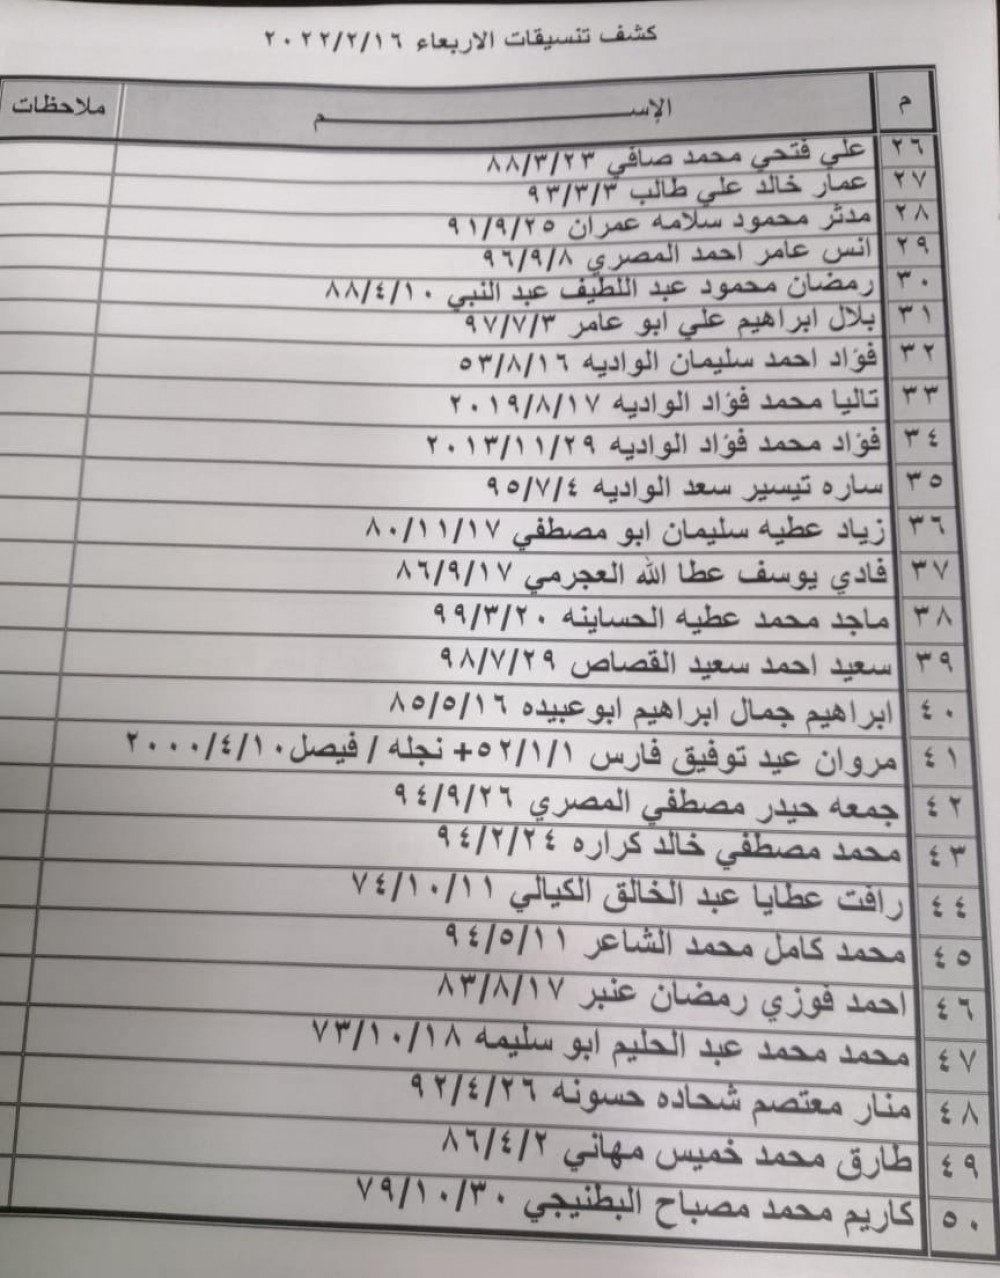 كشف تنسيقات الاربعاء ٢٠٢٢/٢/١٦
م الإســـــم ملاحظات
٢٦ علي فتحي محمد صافي ٨٨/٣/٢٣
٢٧ عمار خالد علي طالب ٩٣/٣/٣
٢٨ مدثر محمود سلامه عمران ٩١/٩/٢٥
٢٩ انس عامر احمد المصري ٩٦/٩/٨
٣٠ رمضان محمود عبد اللطيف عبد النبي ٨٨/٤/١٠
٣١ بلال ابراهيم علي ابو عامر ٩٧/٧/٣
٣٢ فؤاد احمد سليمان الواديه ٥٣/٨/١٦
٣٣ تاليا محمد فؤاد الواديه ٢٠١٩/٨/١٧
٣٤ فؤاد محمد فؤاد الواديه ٢٠١٣/١١/٢٩
٣٥ ساره تيسير سعد الواديه ٩٥/٧/٤
٣٦ زياد عطيه سليمان ابو مصطفي ٨٠/١١/١٧
٣٧ فادي يوسف عطا الله العجرمي ٨٦/٩/١٧
٣٨ ماجد محمد عطيه الحساينه ٩٩/٣/٢٠
٣٩ سعيد احمد سعيد القصاص ٩٨/٧/٢٩
٤٠ ابراهيم جمال ابراهيم ابوعبيده ٨٥/٥/١٦
٤١ مروان عيد توفيق فارس ٥٢/١/١+ نجله / فيصل٢٠٠٠/٤/١٠
٤٢ جمعه حيدر مصطفي المصري ٩٤/٩/٢٦
٤٣ محمد مصطفي خالد كراره ٩٤/٢/٢٤
٤٤ رافت عطايا عبد الخالق الكيالي ٧٤/١٠/١١
٤٥ محمد كامل محمد الشاعر ٩٤/٥/١١
٤٦ احمد فوزي رمضان عنبر ٨٣/٨/١٧
٤٧ محمد محمد عبد الحليم ابو سليمه ٧٣/١٠/١٨
٤٨ منار معتصم شحاده حسونه ٩٢/٤/٢٦
٤٩ طارق محمد خميس مهاني ٨٦/٤/٢
٥٠ كاريم محمد مصباح البطنيجي ٧٩/١٠/٣٠